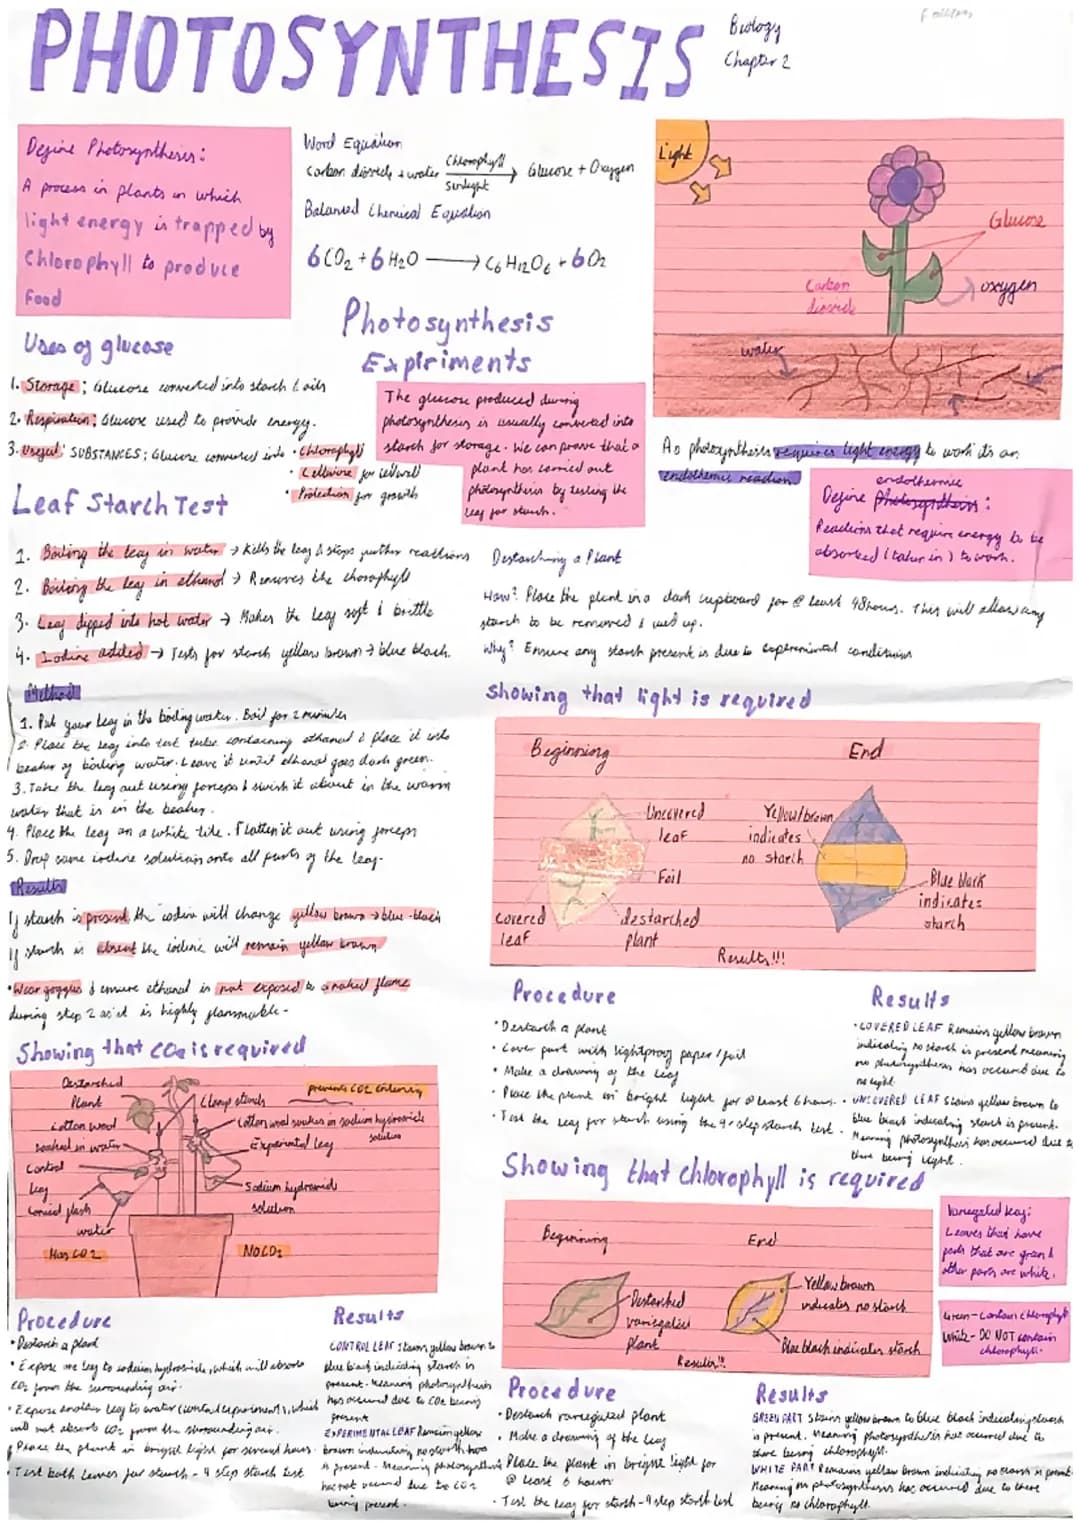 PHOTOSYNTHESIS
Biology
Chapter 2
Define Photosynthesis:
A process in plants in which
light energy is trapped by
Chlorophyll to produce
Food
Word Equation
Carbon dioxide + water Chlorophyll Sunlight → Glucose + Oxygen
Balanced Chemical Equation
6CO2 + 6H2O → C6H12O6 + 6O2
Light
Glucose
Carbon
dioxide
oxygen
water
Uses of glucose
1. Storage: Glucose converted into starch & oils
2. Respiration: Glucose used to provide energy.
3. Useful SUBSTANCES: Glucose converted into • Chlorophyll
• Cellulose for cell wall
• Protein for growth
Photosynthesis
Expiriments
The glucose produced during
photosynthesis is usually converted into
starch for storage. We can prove that a
plant has carried out
photosynthesis by testing the
leaf for starch.
As photosynthesis requires light energy to work it's an
endothermic reaction
endothermic
Define photosynthesis:
Reactions that require energy to be
absorbed (taken in) to work.
Leaf Starch Test
1. Boiling the leaf in water → kills the leaf & stops further reactions
2. Boiling the leaf in ethanol → Removes the chlorophyll
3. Leaf dipped into hot water → Makes the leaf soft & brittle
4. Iodine added → Tests for starch yellow brown → blue black.
Destarching a Plant
How? Place the plant in a dark cupboard for @ least 48 hours. This will allow any
starch to be removed & used up.
Why? Ensure any starch present is due to experimental conditions
Method
1. Put your leaf in the boiling water. Boil for 2 minutes
2. Place the leaf into test tube containing ethanol & place it into
beaker of boiling water. Leave it until ethanol goes dark green.
3. Take the leaf out using forceps & swish it about in the warm
water that is in the beaker.
4. Place the leaf on a white tile. Flatten it out using forceps
5. Drop some iodine solution onto all parts of the leaf.
Results
If starch is present the iodine will change yellow brown → blue-black
If starch is absent the iodine will remain yellow brown
• Wear goggles & ensure ethanol is not exposed to a naked flame
during step 2 as it is highly flammable.
Showing that light is required
Beginning
End
Uncovered
leaf
Foil
covered
leaf
destarched
plant
Yellow/brown
indicates
no starch
Blue black
indicates
starch
Results!!!
Procedure
• Destarch a plant
• Cover part with lightproof paper/foil
• Make a drawing of the leaf
• Place the plant in bright light for @ least 6 hours.
• Test the leaf for starch using the 4-step starch test.
Results
• COVERED LEAF Remains yellow brown
indicating no starch is present meaning
no photosynthesis has occured due to
no light.
• UNCOVERED LEAF Stains yellow brown to
blue black indicating starch is present.
Meaning photosynthesis has occured due to
there being light.
Showing that CO2 is required
Destarched
Plant
Cotton wool
soaked in water
Control
leaf
Conical flask
water
Has CO2
Clamp stands
prevents CO2 entering
Cotton wool soaken in sodium hydroxide
solution
Experimental leaf
Sodium hydroxide
solution
No CO2
Procedure
• Destarch a plant
• Expose one leaf to sodium hydroxide, which will absorb
CO2 from the surrounding air.
• Expose another leaf to water (control experiment), which
will not absorb CO2 from the surrounding air.
• Place the plant in bright light for several hours.
• Test both leaves for starch - 4 step starch test
Results
CONTROL LEAF Stains yellow brown to
blue black indicating starch is
present. Meaning photosynthesis
has occured due to CO2 being
present
EXPERIMENTAL LEAF Remain yellow
brown indicating no starch
present. Meaning photosynthesis
has not occured due to CO2
being present.
Showing that chlorophyll is required
Beginning
End
Destarched
variegated
plant
Yellow brown
indicates no starch
Blue black indicates starch
Results!!
Variegated leaf:
Leaves that have
parts that are green &
other parts are white.
Green - Contain chlorophyll
White - DO NOT contain
chlorophyll.
Procedure
• Destarch variegated plant
• Make a drawing of the leaf
Place the plant in bright light for
@ least 6 hours
• Test the leaf for starch - 4 step starch test
Results
GREEN PART Stains yellow brown to blue black indicating starch
is present. Meaning photosynthesis has occurred due to
there being chlorophyll.
WHITE PART Remains yellow brown indicating no starch is present.
Meaning no photosynthesis has occurred due to there
being no chlorophyll.